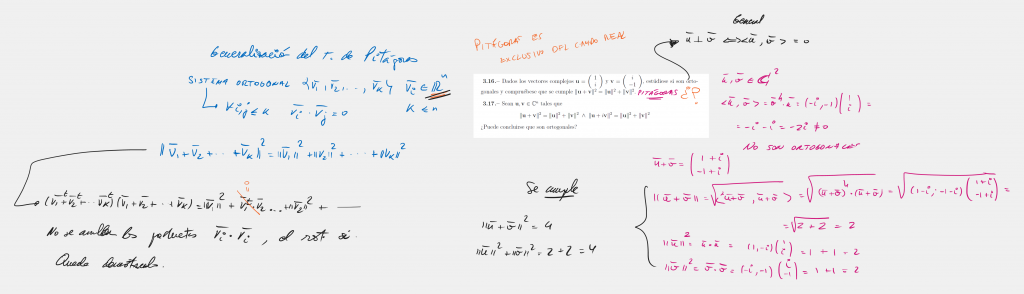 Generalización del T. de Pitágoras
SISTEMA ORTOGONAL {v̄₁, v̄₂, ..., v̄ₖ} v̄ᵢ ∈ ℝⁿ
∀ i,j ≤ k v̄ᵢ · v̄ⱼ = 0 k ≤ n
||v̄₁ + v̄₂ + ... + v̄ₖ||² = ||v̄₁||² + ||v̄₂||² + ... + ||v̄ₖ||²
(v̄₁ᵗ + v̄₂ᵗ + ... v̄ₖᵗ)(v̄₁ + v̄₂ + ... + v̄ₖ) = ||v̄₁||² + v̄₁ᵗ·v̄₂ ... + ||v̄₂||² + —
0
No se anulan los productos v̄ᵢ · v̄ᵢ, el sí.
Queda demostrado.
PITÁGORAS ES
EXCLUSIVO DEL CAMPO REAL
General
ū ⊥ v̄ ⟺ <ū, v̄> = 0
3.16.– Dados los vectores complejos u = (1 i) y v = (i -1), estúdiese si son orto-
gonales y compruébese que se cumple ||u + v||² = ||u||² + ||v||²
PITÁGORAS ¿?
3.17.– Sean u, v ∈ ℂⁿ tales que
||u + v||² = ||u||² + ||v||² ∧ ||u + iv||² = ||u||² + ||v||²
¿Puede concluirse que son ortogonales?
ū, v̄ ∈ ℂ²
<ū, v̄> = v̄ᴴ · ū = (-i, -1) (1 i) =
= -i - i = -2i ≠ 0
NO SON ORTOGONALES
ū + v̄ = (1 + i -1 + i)
Se cumple
||ū + v̄||² = 4
||ū||² + ||v̄||² = 2 + 2 = 4
||ū + v̄|| = √<ū + v̄, ū + v̄> = √(ū + v̄)ᴴ · (ū + v̄) = √(1-i, -1-i) (1+i -1+i) =
= √2 + 2 = 2
||ū||² = ū · ū = (1, -i) (1 i) = 1 + 1 = 2
||v̄||² = v̄ · v̄ = (-i, -1) (i -1) = 1 + 1 = 2